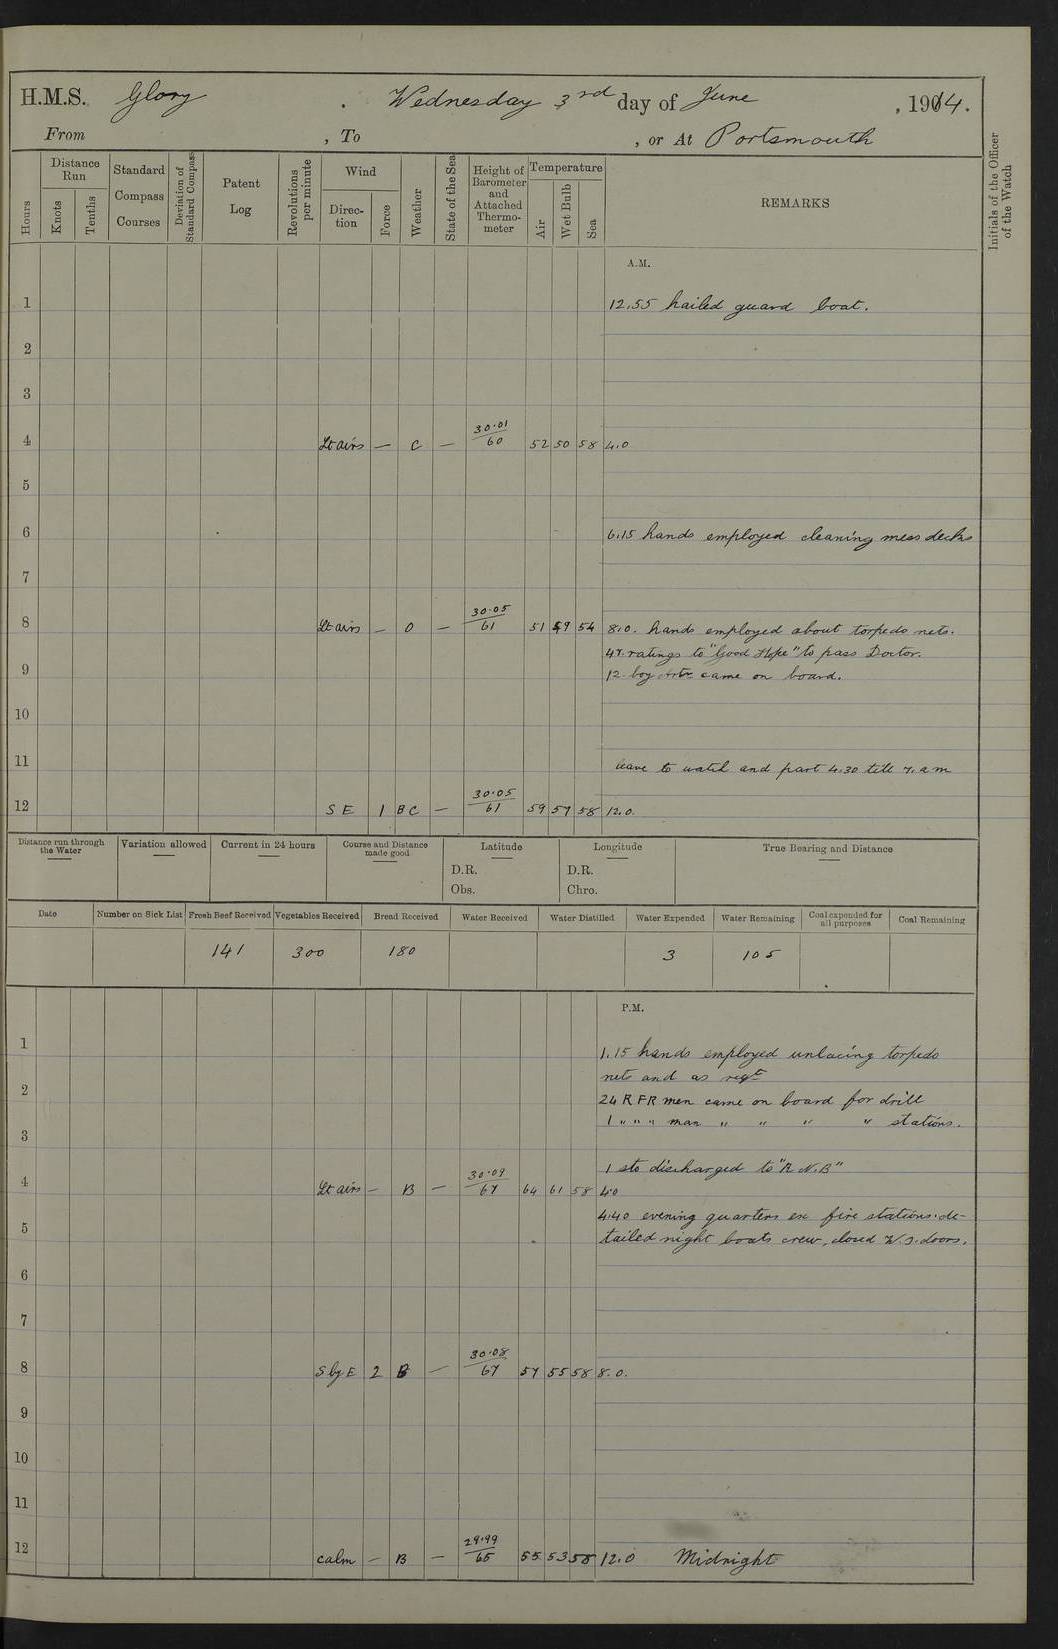 H.M.S. Glory . Wednesday 3rd day of June , 1914.
From , To , or At Portsmouth
Hours
Distance Run
Knots
Tenths
Standard Compass Courses
Deviation of Standard Compass
Patent Log
Revolutions per minute
Wind
Direction
Force
Weather
State of the Sea
Height of Barometer and Attached Thermometer
Temperature
Air
Wet Bulb
Sea
REMARKS
Initials of the Officer of the Watch
A.M.
1 12.55 hailed guard boat.
2
3
4 Lt airs — C — 30·01/60 52 50 58 4.0
5
6 6.15 hands employed cleaning mess decks
7
8 Lt airs — O — 30·05/61 51 49 54 8.0. hands employed about torpedo nets.
47 ratings to "Good Hope" to pass Doctor.
9 12 boy came on board.
10
11 leave to watch and part 4.30 till 7. a m
12 S E 1 B C — 30·05/61 59 57 58 12.0.
Distance run through the Water
Variation allowed
Current in 24 hours
Course and Distance made good
Latitude
D.R.
Obs.
Longitude
D.R.
Chro.
True Bearing and Distance
Date Number on Sick List Fresh Beef Received Vegetables Received Bread Received Water Received Water Distilled Water Expended Water Remaining Coal expended for all purposes Coal Remaining
141 300 180 3 105
P.M.
1 1.15 hands employed unlacing torpedo
nets and as reqt
2 24 R F R men came on board for drill
1 " " " man " " " " stations.
3
1 sto discharged to "R N.B"
4 Lt airs — B — 30·09/67 64 61 58 4.0
4.40 evening quarters ex fire stations. de-
5 tailed night boats crew, closed W.T. doors.
6
7
8 S by E 2 B — 30·08/67 57 55 58 8.0.
9
10
11
12 calm — B — 29·99/65 55 53 58 12.0 Midnight